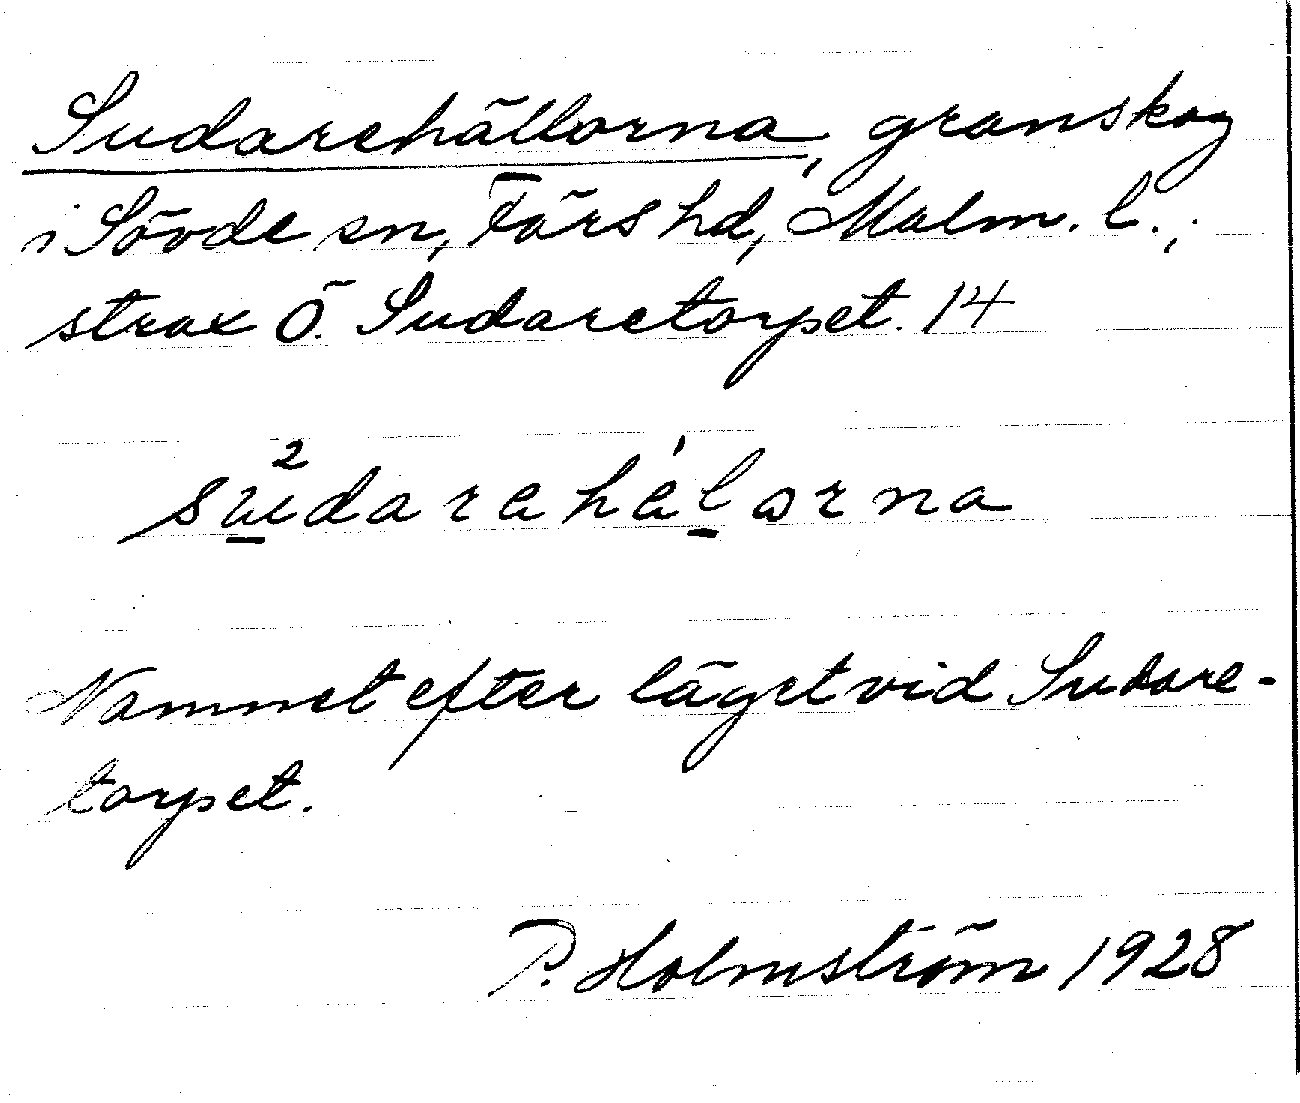 Sudarehällorna, granskog
i Sövde sn, Färs hd, Malm. l.,
strax Ö. Sudaretorpet. 14
su²darehe'lorna
Namnet efter läget vid Sudare-
torpet.
P. Holmström 1928